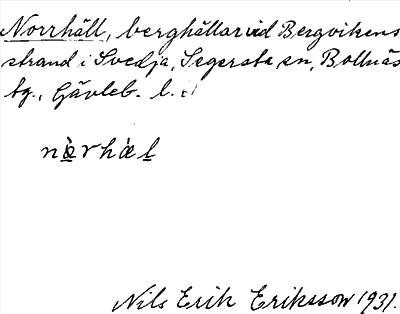 Norrhäll, berghällar vid Bergvikens
strand i Svedja, Segersta sn, Bollnäs
tg., Gävleb. l.
Nils Erik Eriksson 1931.